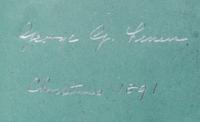 George G.
Christmas 1891